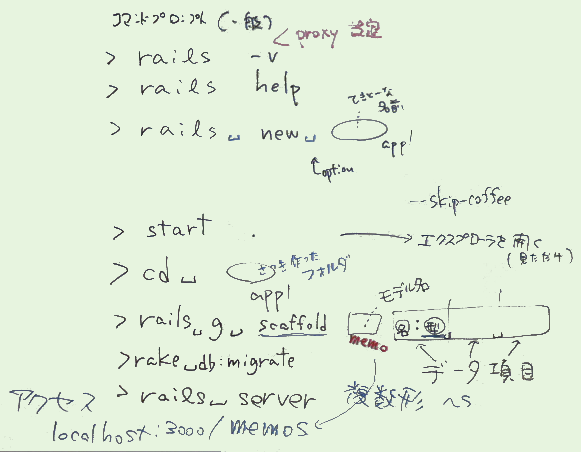 コマンドプロンプト (一般)
proxy 設定
> rails -v
> rails help
てきとーな
名前
> rails␣ new␣ app1
↑option
--skip-coffee
> start . → エクスプローラを開く
(見ただけ)
> cd␣ さっき作ったフォルダ
app1
モデル名
> rails␣g␣ scaffold 名:型
memo
データ項目
>rake␣db:migrate
アクセス > rails␣ server 複数形 ~s
localhost:3000/memos